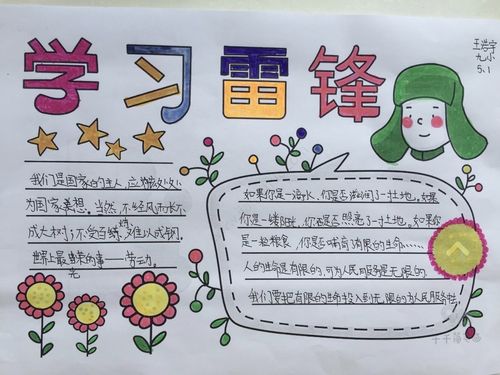 学习雷锋
王浩宇
九小
5.1
我们是国家的主人,应该处处
为国家着想。当然,不经风雨长不
成大树,不受百炼难以成钢。
世界上最光荣的事——劳动。
如果你是一滴水,你是否滋润了一片土地。如果
你是一缕阳光,你是否照亮了一片土地。如果你
是一粒粮食,你是否哺育了有限的生命……
人的生命是有限的,可为人民服务是无限的。
我们要把有限的生命投入到无限的为人民服务中